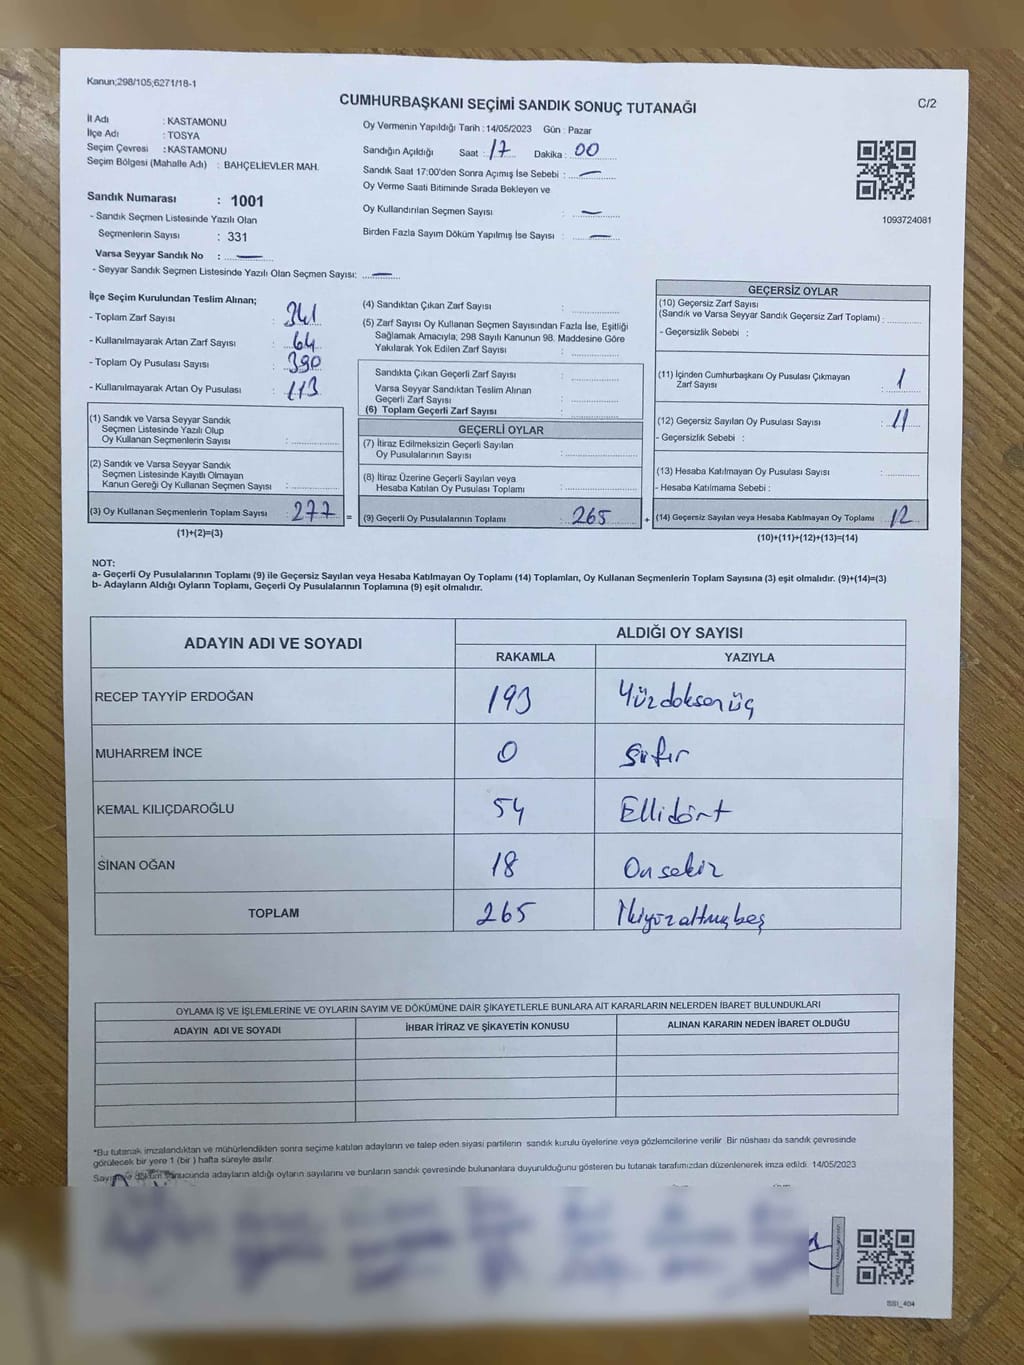 Kanun;298/105;6271/18-1
CUMHURBAŞKANI SEÇİMİ SANDIK SONUÇ TUTANAĞI
C/2
İl Adı : KASTAMONU
İlçe Adı : TOSYA
Seçim Çevresi : KASTAMONU
Seçim Bölgesi (Mahalle Adı) : BAHÇELİEVLER MAH.
Sandık Numarası : 1001
- Sandık Seçmen Listesinde Yazılı Olan
Seçmenlerin Sayısı : 331
Varsa Seyyar Sandık No : —
- Seyyar Sandık Seçmen Listesinde Yazılı Olan Seçmen Sayısı: —
Oy Vermenin Yapıldığı Tarih : 14/05/2023 Gün : Pazar
Sandığın Açıldığı Saat : 17 Dakika : 00
Sandık Saat 17:00'den Sonra Açımış İse Sebebi : —
Oy Verme Saati Bitiminde Sırada Bekleyen ve
Oy Kullandırılan Seçmen Sayısı : —
Birden Fazla Sayım Döküm Yapılmış İse Sayısı : —
1093724081
İlçe Seçim Kurulundan Teslim Alınan;
- Toplam Zarf Sayısı : 341
- Kullanılmayarak Artan Zarf Sayısı : 64
- Toplam Oy Pusulası Sayısı : 390
- Kullanılmayarak Artan Oy Pusulası : 113
(1) Sandık ve Varsa Seyyar Sandık
Seçmen Listesinde Yazılı Olup
Oy Kullanan Seçmenlerin Sayısı :
(2) Sandık ve Varsa Seyyar Sandık
Seçmen Listesinde Kayıtlı Olmayan
Kanun Gereği Oy Kullanan Seçmen Sayısı :
(3) Oy Kullanan Seçmenlerin Toplam Sayısı : 277 =
(1)+(2)=(3)
(4) Sandıktan Çıkan Zarf Sayısı :
(5) Zarf Sayısı Oy Kullanan Seçmen Sayısından Fazla İse, Eşitliği
Sağlamak Amacıyla; 298 Sayılı Kanunun 98. Maddesine Göre
Yakılarak Yok Edilen Zarf Sayısı :
Sandıkta Çıkan Geçerli Zarf Sayısı :
Varsa Seyyar Sandıktan Teslim Alınan
Geçerli Zarf Sayısı :
(6) Toplam Geçerli Zarf Sayısı :
GEÇERLİ OYLAR
(7) İtiraz Edilmeksizin Geçerli Sayılan
Oy Pusulalarının Sayısı :
(8) İtiraz Üzerine Geçerli Sayılan veya
Hesaba Katılan Oy Pusulası Toplamı :
(9) Geçerli Oy Pusulalarının Toplamı : 265 +
GEÇERSİZ OYLAR
(10) Geçersiz Zarf Sayısı
(Sandık ve Varsa Seyyar Sandık Geçersiz Zarf Toplamı) :
- Geçersizlik Sebebi :
(11) İçinden Cumhurbaşkanı Oy Pusulası Çıkmayan
Zarf Sayısı : 1
(12) Geçersiz Sayılan Oy Pusulası Sayısı : 11
- Geçersizlik Sebebi :
(13) Hesaba Katılmayan Oy Pusulası Sayısı :
- Hesaba Katılmama Sebebi :
(14) Geçersiz Sayılan veya Hesaba Katılmayan Oy Toplamı : 12
(10)+(11)+(12)+(13)=(14)
NOT:
a- Geçerli Oy Pusulalarının Toplamı (9) ile Geçersiz Sayılan veya Hesaba Katılmayan Oy Toplamı (14) Toplamları, Oy Kullanan Seçmenlerin Toplam Sayısına (3) eşit olmalıdır. (9)+(14)=(3)
b- Adayların Aldığı Oyların Toplamı, Geçerli Oy Pusulalarının Toplamına (9) eşit olmalıdır.
ADAYIN ADI VE SOYADI ALDIĞI OY SAYISI
RAKAMLA YAZIYLA
RECEP TAYYİP ERDOĞAN 193 Yüzdoksanüç
MUHARREM İNCE 0 Sıfır
KEMAL KILIÇDAROĞLU 54 Ellidört
SİNAN OĞAN 18 On sekiz
TOPLAM 265 İkiyüzaltmışbeş
OYLAMA İŞ VE İŞLEMLERİNE VE OYLARIN SAYIM VE DÖKÜMÜNE DAİR ŞİKAYETLERLE BUNLARA AİT KARARLARIN NELERDEN İBARET BULUNDUKLARI
ADAYIN ADI VE SOYADI İHBAR İTİRAZ VE ŞİKAYETİN KONUSU ALINAN KARARIN NEDEN İBARET OLDUĞU
*Bu tutanak imzalandıktan ve mühürlendikten sonra seçime katılan adayların ve talep eden siyasi partilerin sandık kurulu üyelerine veya gözlemcilerine verilir. Bir nüshası da sandık çevresinde
görülecek bir yere 1 (bir ) hafta süreyle asılır.
Sayım ve döküm sonucunda adayların aldığı oyların sayılarını ve bunların sandık çevresinde bulunanlara duyurulduğunu gösteren bu tutanak tarafımızdan düzenlenerek imza edildi. 14/05/2023